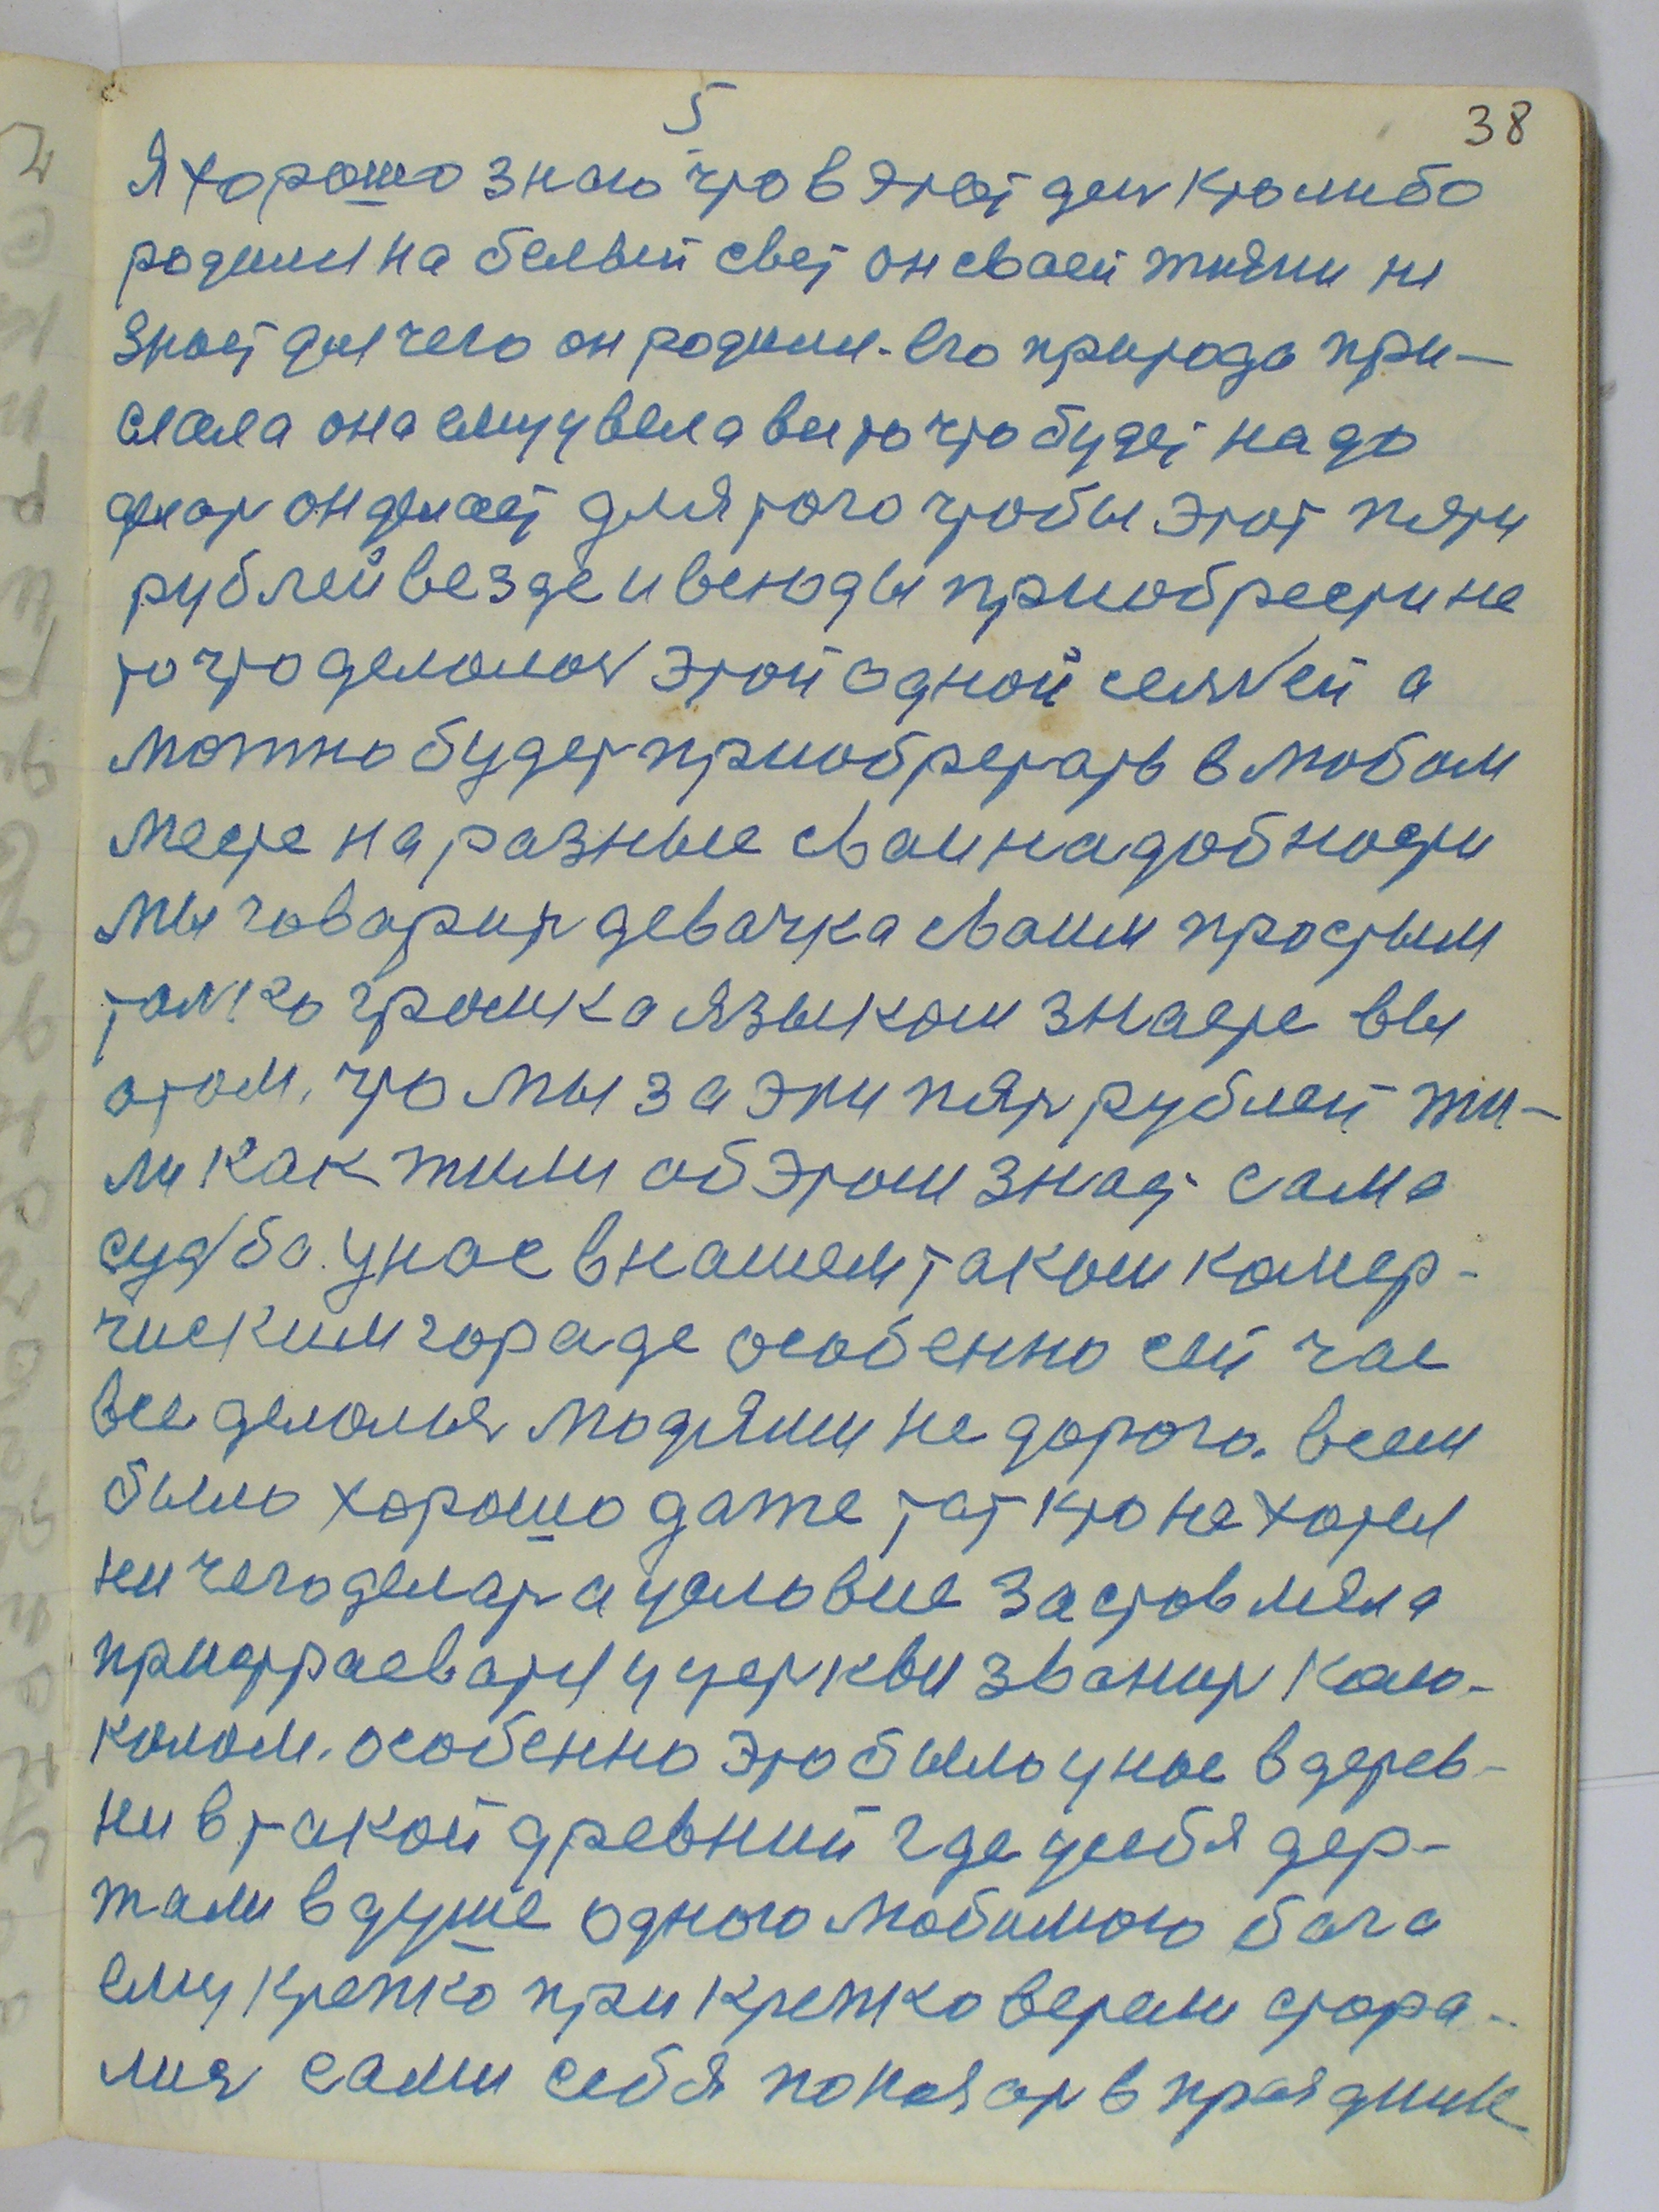 5
38
Я хорошо знаю что в этот ден кто либо
родился на белый свет он сваей жизни не
знает для чего он родился. его природа при-
слала она ему увела все то что будет надо
делат он делает для того чтобы этот пяти
рублей везде и всюды приобрести не
то что делалось этой одной семьей а
можно будет приобретать в любом
месте на разные сваи надобности
мы говарит девачка сваим простым
только громка языком знаете вы
о том, что мы за эти пят рублей жи-
ли как жили об этом знает сама
судьба. у нас в нашем таком камер-
ческим гораде особенно сей час
все делалися людями не дорого. всем
было хорошо даже тот кто не хотел
ни чего делат а условие заставляла
пристраеватся у церкви званит кало-
колом. особенно это было у нас в дерев-
ни в такой древний где у себя дер-
жали в душе одного любимого бога
ему крепко при крепко верели стора-
лися сами себя показат в праздник